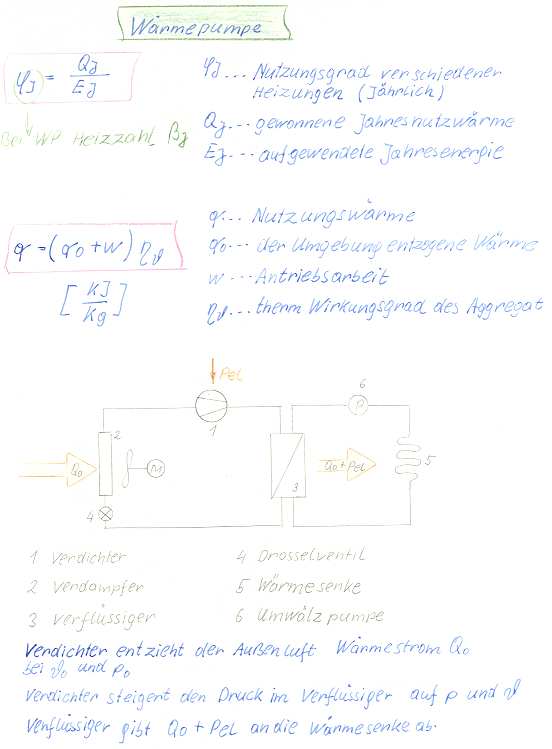 Wärmepumpe
φJ = QJ / EJ
φJ ... Nutzungsgrad verschiedener
Heizungen (Jährlich)
Bei WP Heizzahl βJ
QJ ... gewonnene Jahresnutzwärme
EJ ... aufgewendete Jahresenergie
q = (q0 + w) ηϑ
[kJ / kg]
q ... Nutzungswärme
q0 ... der Umgebung entzogene Wärme
w ... Antriebsarbeit
ηϑ ... therm Wirkungsgrad des Aggregat
Pel
1
6
P
2
Q0
M
3
Q0 + Pel
5
4
1 Verdichter
2 Verdampfer
3 Verflüssiger
4 Drosselventil
5 Wärmesenke
6 Umwälzpumpe
Verdichter entzieht der Außenluft Wärmestrom Q0
bei ϑ0 und p0
Verdichter steigert den Druck im Verflüssiger auf p und ϑ
Verflüssiger gibt Q0 + Pel an die Wärmesenke ab.